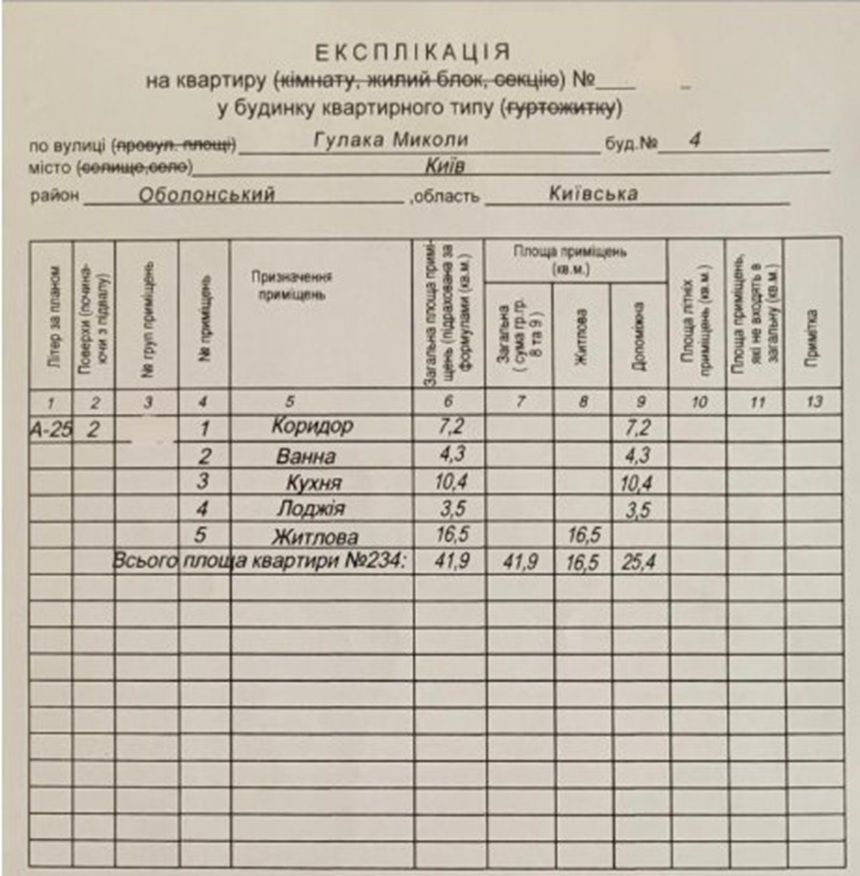 ЕКСПЛІКАЦІЯ
на квартиру (кімнату, жилий блок, секцію) №
у будинку квартирного типу (гуртожитку)
по вулиці (провул. площі) Гулака Миколи буд.№ 4
місто (селище,село) Київ
район Оболонський ,область Київська
Літер за планом
Поверхи (почина-
ючи з підвалу)
№ груп приміщень
№ приміщень
Призначення
приміщень
Загальна площа примі-
щень (підрахована за
формулами (кв.м.)
Площа приміщень
(кв.м.)
Загальна
( сума гр.гр.
8 та 9 )
Житлова
Допоміжна
Площа літніх
приміщень (кв.м.)
Площа приміщень,
які не входять в
загальну (кв.м.)
Примітка
1 2 3 4 5 6 7 8 9 10 11 13
А-25 2 1 Коридор 7,2 7,2
2 Ванна 4,3 4,3
3 Кухня 10,4 10,4
4 Лоджія 3,5 3,5
5 Житлова 16,5 16,5
Всього площа квартири №234: 41,9 41,9 16,5 25,4